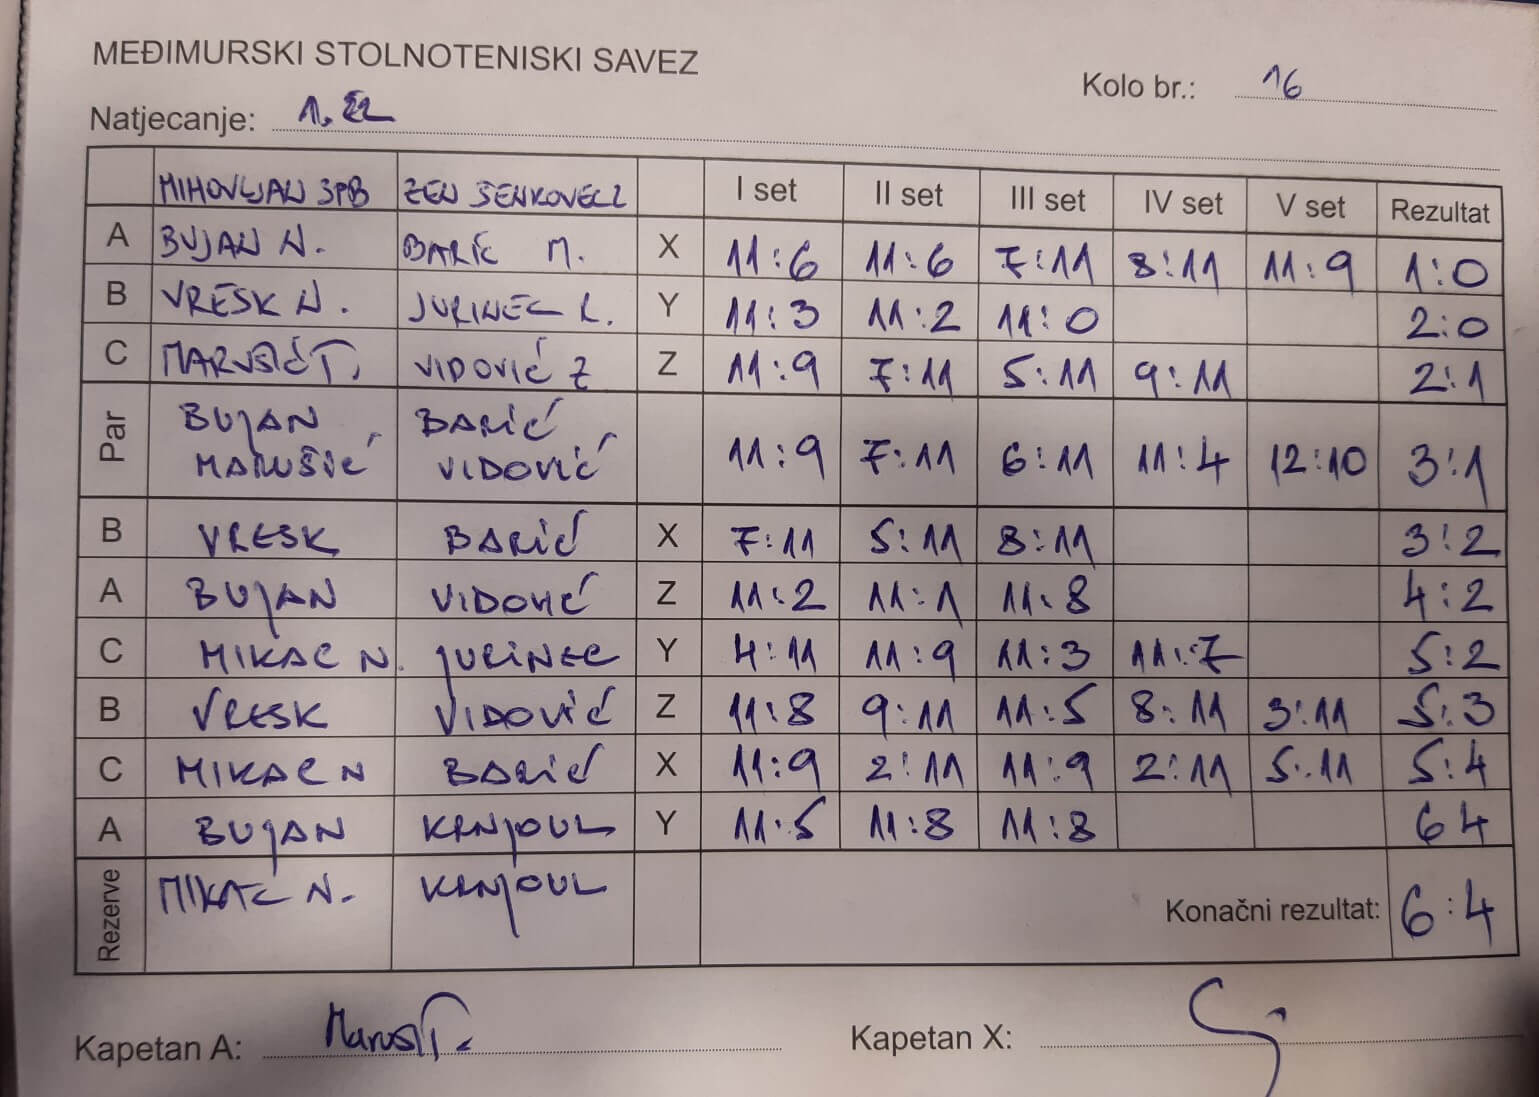 MEĐIMURSKI STOLNOTENISKI SAVEZ
Kolo br.: 16
Natjecanje: 1.
MIHOVLJAN SPB ZEN SENKOVEC 2 I set II set III set IV set V set Rezultat
A BUJAN N. BARIĆ M. X 11:6 11:6 7:11 8:11 11:9 1:0
B VRESK N. JURINEC L. Y 11:3 11:2 11:0 2:0
C MARUŠIĆ T. VIDOVIĆ Z Z 11:9 7:11 5:11 9:11 2:1
Par BUJAN MARUŠIĆ BARIĆ VIDOVIĆ 11:9 7:11 6:11 11:4 12:10 3:1
B VRESK BARIĆ X 7:11 5:11 8:11 3:2
A BUJAN VIDOVIĆ Z 11:2 11:1 11:8 4:2
C MIKAC N. JURINEC Y 4:11 11:9 11:3 11:7 5:2
B VRESK VIDOVIĆ Z 11:8 9:11 11:5 8:11 3:11 5:3
C MIKAC N BARIĆ X 11:9 2:11 11:9 2:11 5:11 5:4
A BUJAN KRNJOUL Y 11:5 11:8 11:8 6 4
Rezerve MIKAC N. KRNJOUL Konačni rezultat: 6:4
Kapetan A: Marusić T. Kapetan X: